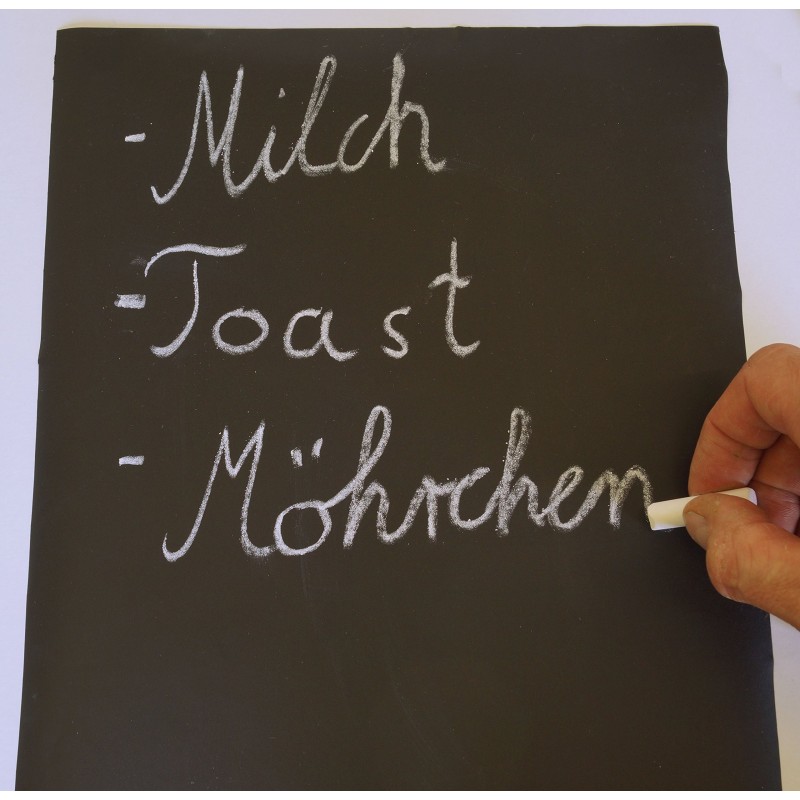 - Milch
- Toast
- Möhrchen